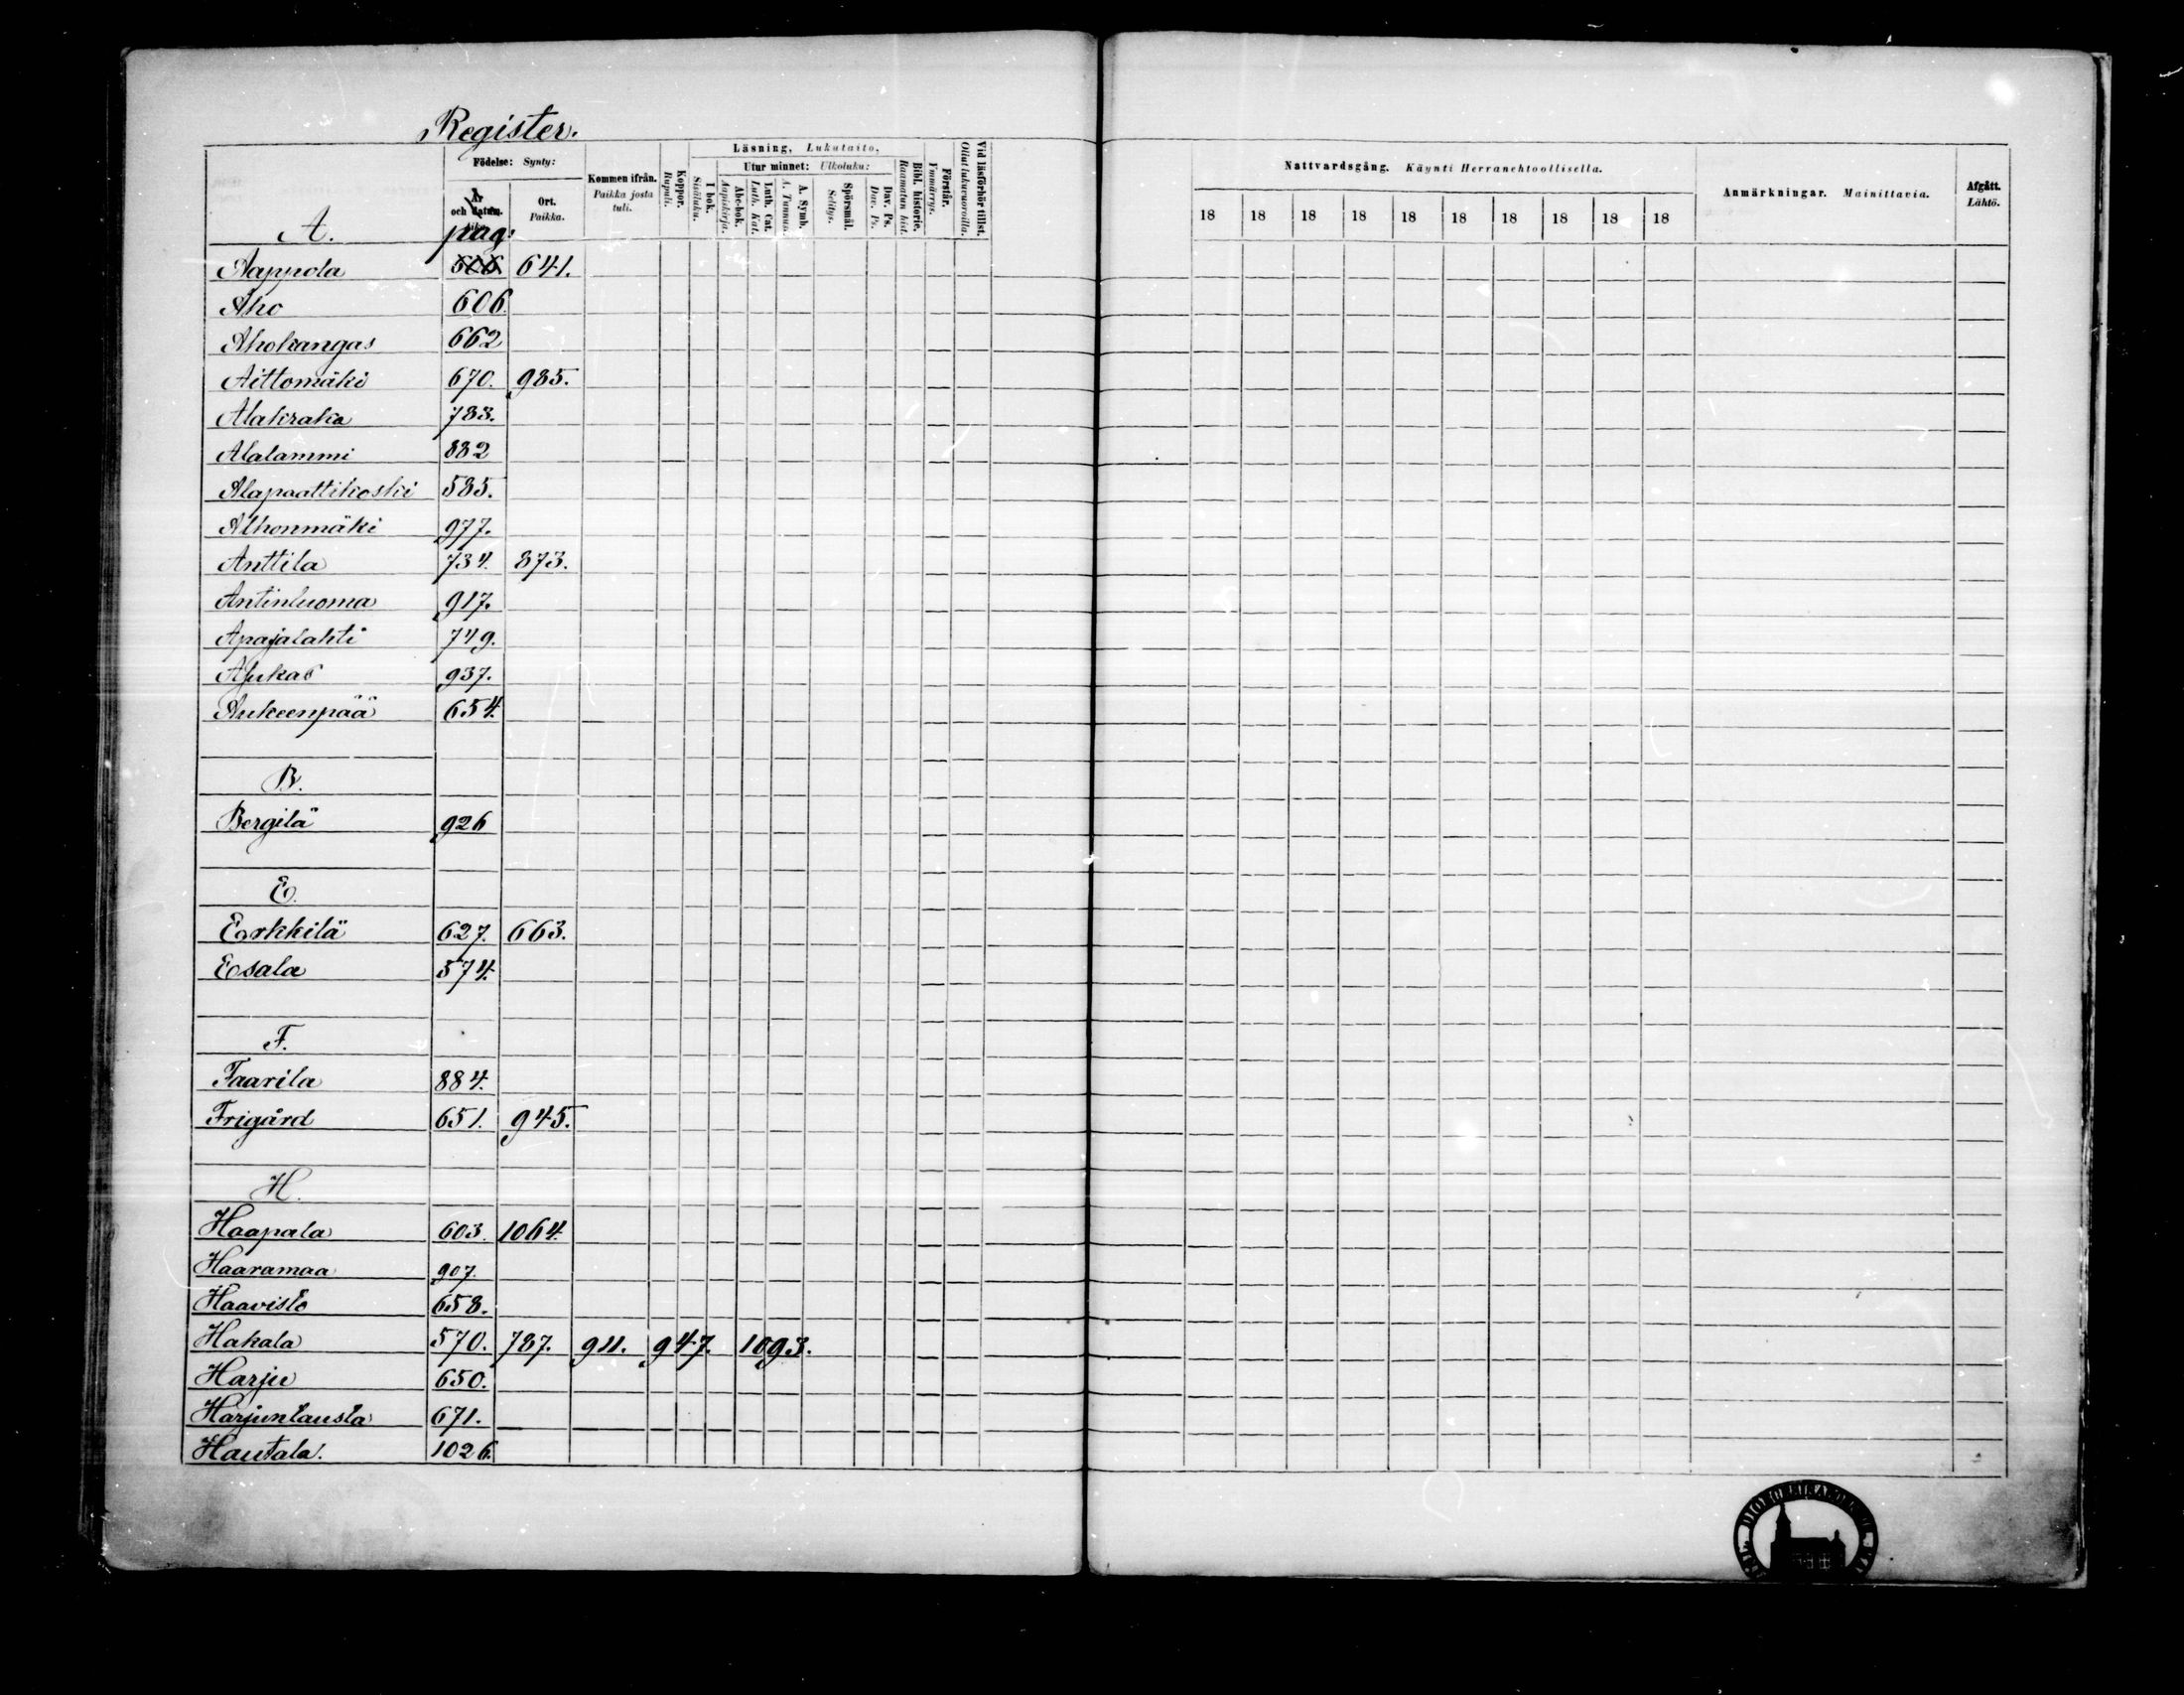 Register.
Födelse: Synty:
År och datum.
Ort. Paikka.
Kommen ifrån. Paikka josta tuli.
Koppor. Rupuli.
Läsning, Lukutaito,
I bok. Sisäluku.
Utur minnet: Ulkoluku:
Abc-bok. Aapiskirja.
Luth. Cat. Luth. Kat.
A. Symb. A. Tunnus.
Spörsmål. Selitys.
Dav. Ps. Dav. Ps.
Bibl. historie. Raamatun hist.
Förstår. Ymmärrys.
Vid läsförhör tillst. Ollut lukuvuoroilla.
Nattvardsgång. Käynti Herranehtoollisella.
18 18 18 18 18 18 18 18 18 18
Anmärkningar. Mainittavia.
Afgått. Lähtö.
A. pag:
Aappola 641.
Aho 606.
Ahokangas 662
Aittomäki 670. 985.
Alakraka 783.
Alalammi 882
Alapaattikoski 585.
Alhonmäki 977.
Anttila 734. 873.
Antinluoma 917.
Apajalahti 749.
937.
Aukeenpää 654.
B.
Bergilä 926
E.
Eerkkilä 627. 663.
Esala 574.
F.
Faarila 884.
Frigård 651. 945.
H.
Haapala 603. 1064.
Haaramaa 907.
Haavisto 658.
Hakala 570. 787. 911. 947. 1093.
Harju 650.
Harjuntausta 671.
Hautala. 1026.